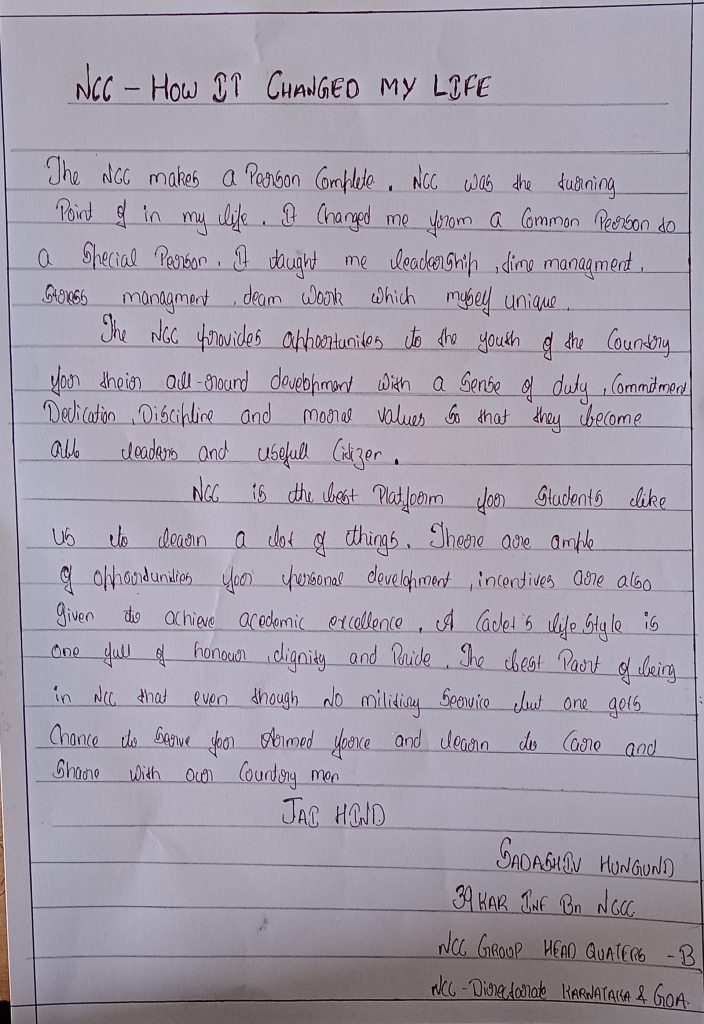 NCC – HOW IT CHANGED MY LIFE
The NCC makes a Person Complete. NCC was the turning
Point of in my life. It Changed me from a Common Person to
a Special Person. It taught me leadership, time managment,
Stress managment, team work which myself unique.
The NCC provides opportunites to the youth of the Country
for their all-round development with a Sense of duty, Commitment
Dedication, Discipline and moral values so that they become
able leaders and usefull Citizen.
NCC is the best Platform for Students like
us to learn a lot of things. There are ample
of opportunities for personal development, incentives are also
given to achieve academic excellence. A Cadet's life style is
one full of honour, dignity and Pride. The best Part of being
in NCC that even though No military Service but one gets
Chance to Serve for Armed force and learn to Care and
Share with our Country men
JAI HIND
SADASHIV HUNGUND
39 KAR INF Bn NCC
NCC GROUP HEAD QUATERS - B
NCC - Directorate KARNATAKA & GOA.